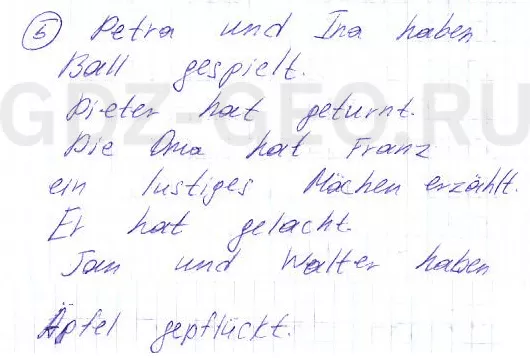 5 Petra und Ina haben
Ball gespielt.
Dieter hat geturnt.
Die Oma hat Franz
ein lustiges Mächen erzählt.
Er hat gelacht.
Jan und Walter haben
Äpfel gepflückt.
GDZ-GEO.RU